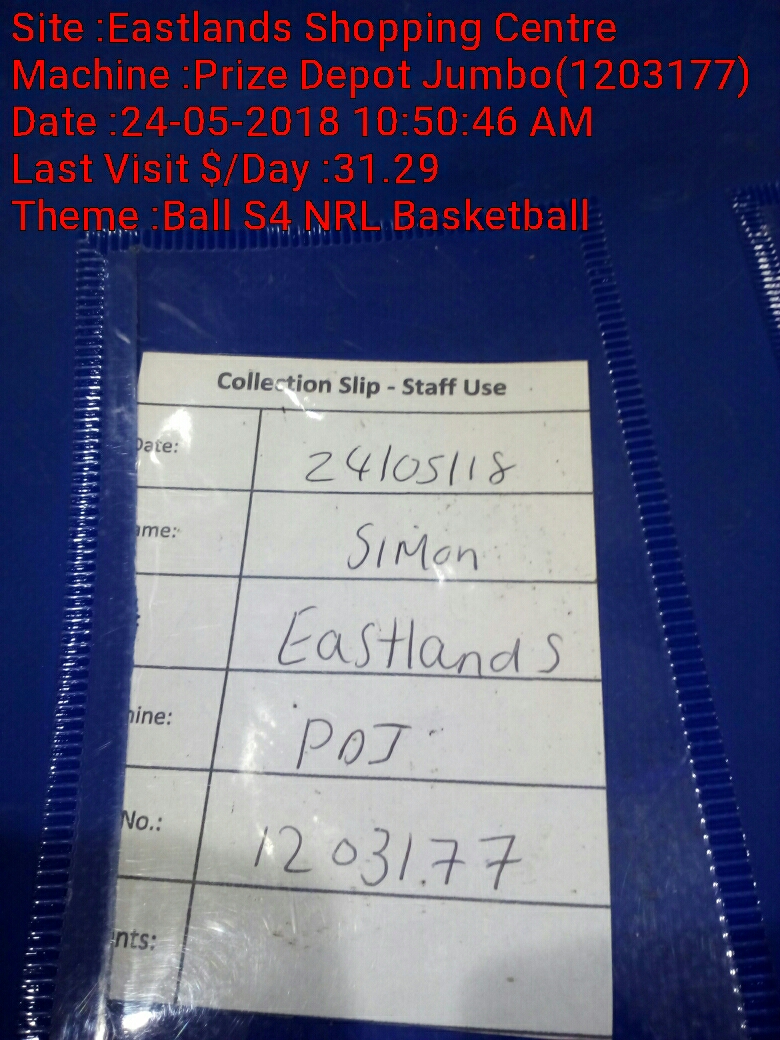 Site :Eastlands Shopping Centre
Machine :Prize Depot Jumbo(1203177)
Date :24-05-2018 10:50:46 AM
Last Visit $/Day :31.29
Theme :Ball S4 NRL Basketball
Collection Slip - Staff Use
Date: 24/05/18
ame: SIMon
: Eastlands
hine: PDJ
No.: 1203177
nts: